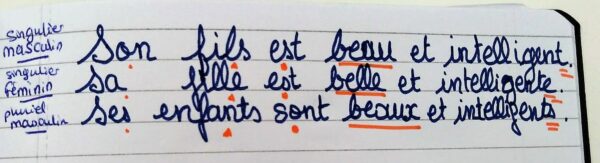 singulier masculin Son fils est beau et intelligent.
singulier féminin Sa fille est belle et intelligente.
pluriel masculin Ses enfants sont beaux et intelligents.